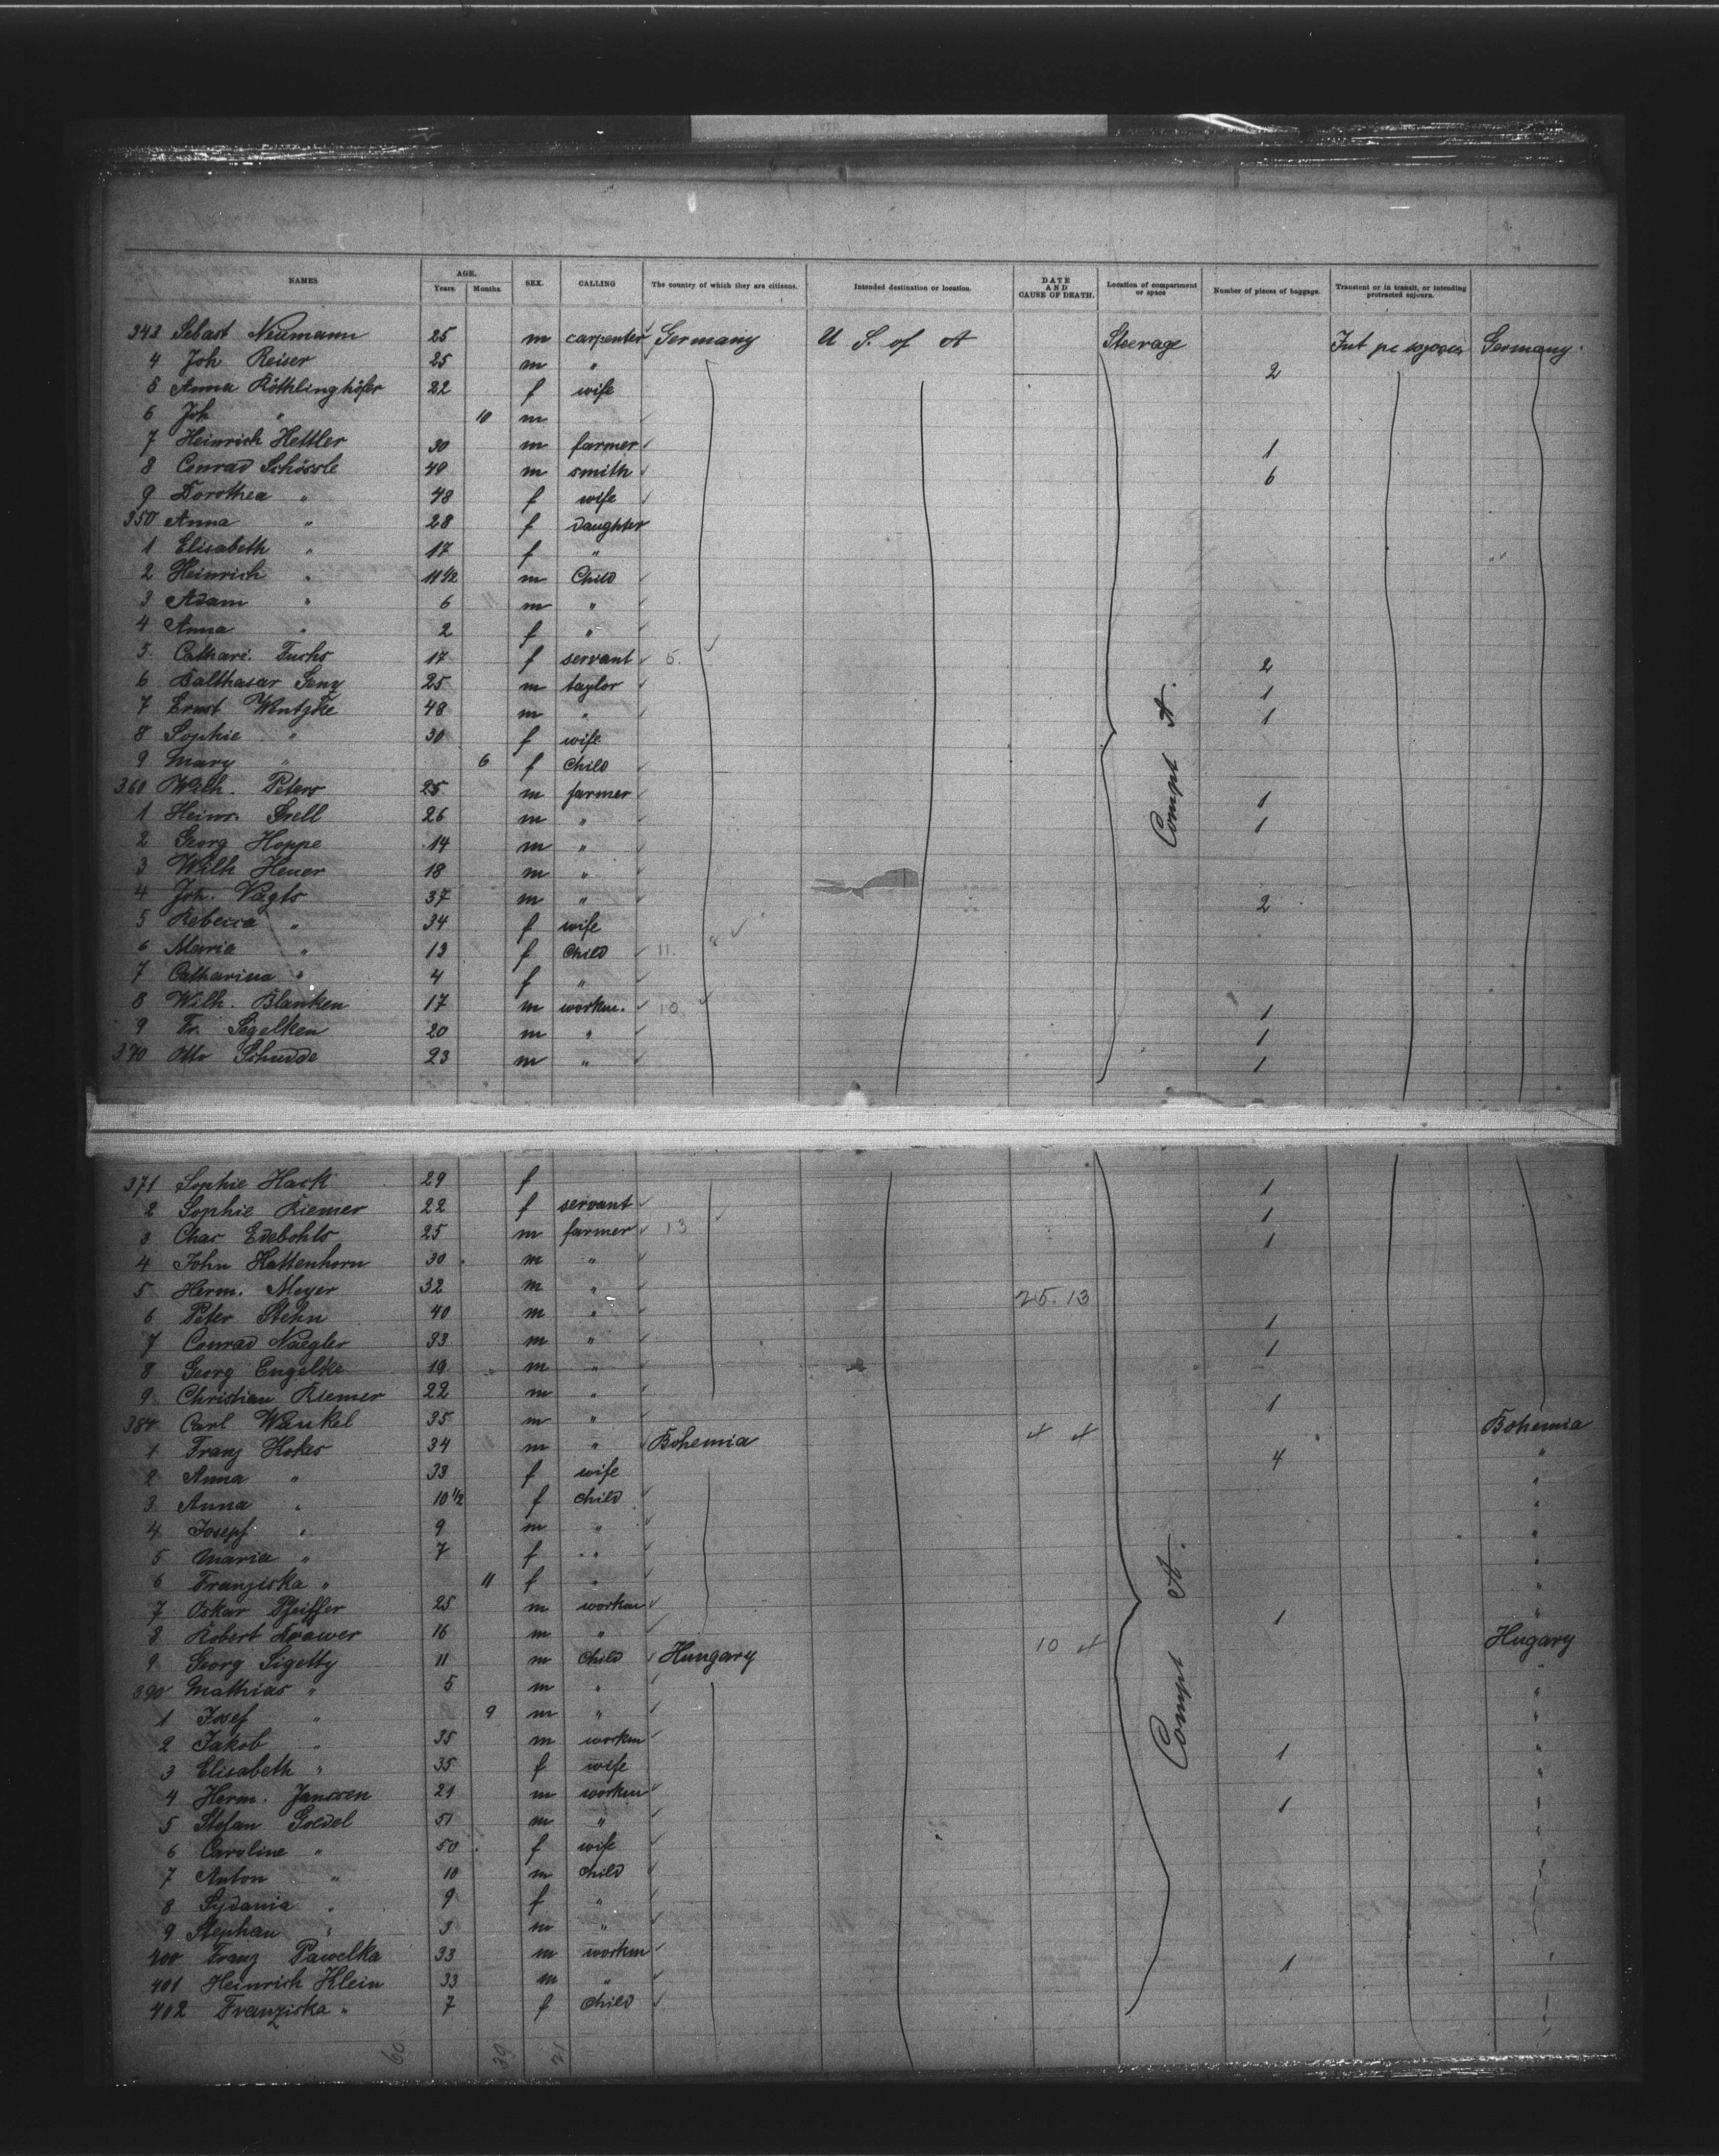 NAMES AGE. Years. Months. SEX. CALLING The country of which they are citizens. Intended destination or location. DATE AND CAUSE OF DEATH. Location of compartment or space Number of pieces of baggage. Transient or in transit, or intending protracted sojourn.
343 Sebast Neumann 25 m carpenter Germany U S. of A Steerage Germany
4 Joh Reiser 25 m " 2
5 Anna Röthlinghöfer 22 f wife
6 Joh " 10 m
7 Heinrich Hettler 30 m farmer 1
8 Conrad Schössle 49 m smith 6
9 Dorothea " 48 f wife
350 Anna " 28 f daughter
1 Elisabeth " 17 f "
2 Heinrich " 11 1/2 m Child
3 Adam " 6 m "
4 Anna " 2 f "
5 Cathari. Fuchs 17 f servant 5. 2
6 Balthasar Geny 25 m taylor 1
7 Ernst Wentzke 48 m " 1
8 Sophie " 30 f wife
9 Mary " 6 f Child
360 Wilh. Peters 25 m farmer 1
1 Heinr. Grell 26 m " 1
2 Georg Hoppe 14 m "
3 Wilh Heuer 18 m "
4 Joh. Vagts 37 m " 2
5 Rebecca " 34 f wife
6 Maria " 13 f Child 11. 8
7 Catharina " 4 f "
8 Wilh. Blanken 17 m workm. 10 1
9 Fr. Segelken 20 m " 1
370 Otto Schudde 23 m " 1
Compt A.
371 Sophie Hack 29 f 1
2 Sophie Riemer 22 f servant 1
3 Chas Edebohls 25 m farmer 13 1
4 John Hattenhorn 30 m "
5 Herm. Meyer 32 m " 25. 13
6 Peter Stehn 40 m " 1
7 Conrad Naegler 33 m " 1
8 Georg Engelke 19 m "
9 Christian Riemer 22 m " 1
380 Carl Wankel 35 m " Bohemia
1 Franz Hokes 34 m " Bohemia 4 4 4 "
2 Anna " 33 f wife "
3 Anna " 10 1/2 f child "
4 Josepf " 9 m " "
5 Maria " 7 f " "
6 Franziska " 11 f " "
7 Oskar Pfeiffer 25 m workm 1 "
8 Robert Krawer 16 m " Hugary
9 Georg Sigetty 11 m child Hungary 10 4 "
390 Mathias " 5 m " "
1 Josef " 9 m " "
2 Jakob " 35 m workm 1 "
3 Elisabeth " 35 f wife "
4 Herm. Janssen 21 m workm 1 "
5 Stefan Goedel 51 m " "
6 Caroline " 50 f wife
7 Anton " 10 m child
8 Sydania " 9 f "
9 Stephan " 3 m "
400 Franz Pawelka 33 m workm 1 "
401 Heinrich Klein 33 m "
402 Franziska " 7 f child
Compt A.
60 39 21